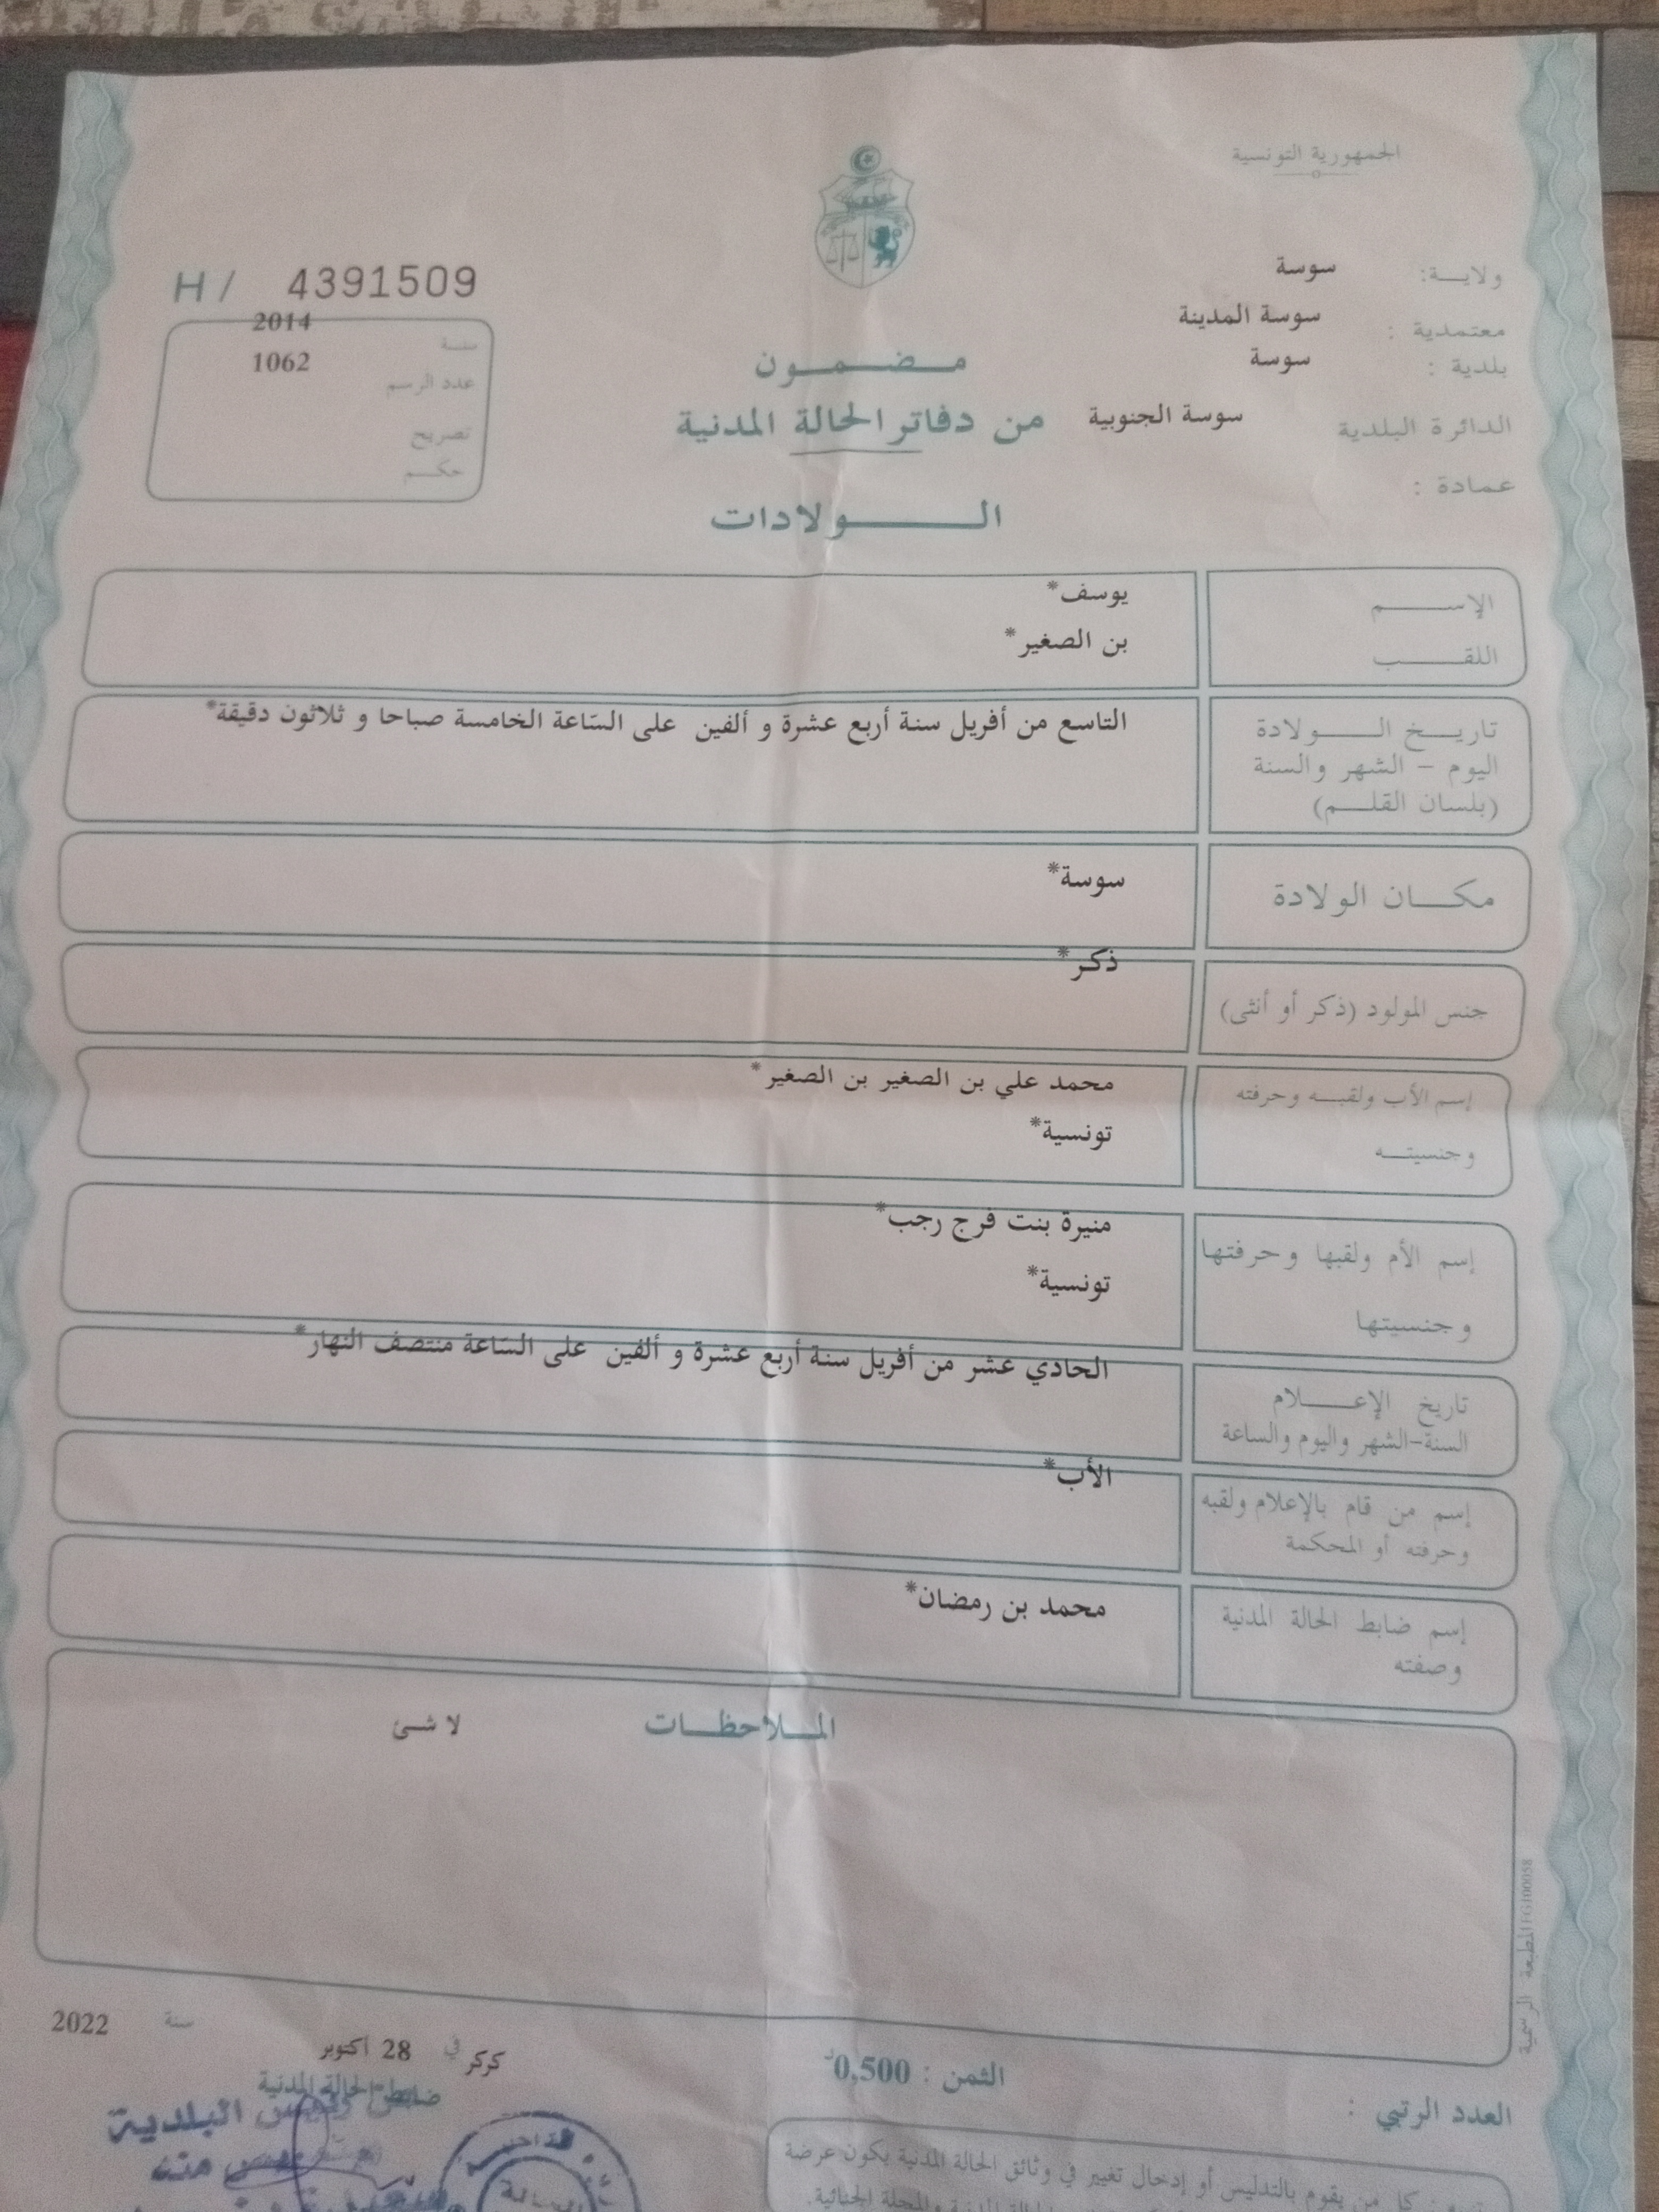 الجمهورية التونسية
ولاية: سوسة
معتمدية : سوسة المدينة
بلدية : سوسة
الدائرة البلدية سوسة الجنوبية
عمادة :
H/ 4391509
سنة 2014
عدد الرسم 1062
تصريح
حكم
مضمون
من دفاتر الحالة المدنية
الولادات
الإسم يوسف*
اللقب بن الصغير*
تاريخ الولادة التاسع من أفريل سنة أربع عشرة و ألفين على السّاعة الخامسة صباحا و ثلاثون دقيقة*
اليوم - الشهر والسنة
(بلسان القلم)
مكان الولادة سوسة*
جنس المولود (ذكر أو أنثى) ذكر*
إسم الأب ولقبه وحرفته محمد علي بن الصغير بن الصغير*
وجنسيته تونسية*
إسم الأم ولقبها وحرفتها منيرة بنت فرج رجب*
وجنسيتها تونسية*
تاريخ الإعلام الحادي عشر من أفريل سنة أربع عشرة و ألفين على السّاعة منتصف النهار*
السنة-الشهر واليوم والساعة
إسم من قام بالإعلام ولقبه الأب*
وحرفته أو المحكمة
إسم ضابط الحالة المدنية محمد بن رمضان*
وصفته
الملاحظات لا شئ
المطبعة الرسمية
كركر في 28 أكتوبر سنة 2022
ضابط الحالة المدنية
رئيس البلدية
الثمن : 0,500د
العدد الرتبي :
كل من يقوم بالتدليس أو إدخال تغيير في وثائق الحالة المدنية يكون عرضة
المدنية والمجلة الجنائية.